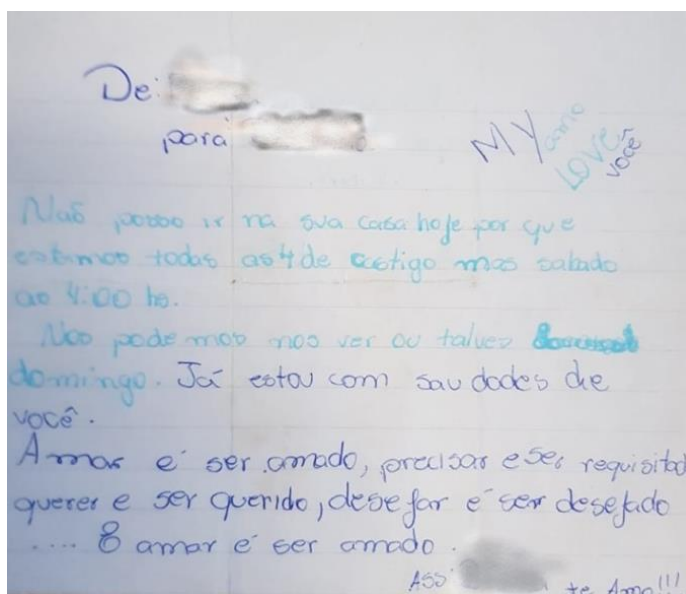 De:
para
MY amo
LOVE você
Não posso ir na sua casa hoje por que
estamos todas as 4 de castigo mas sabado
as 4:00 hs.
Nos podemos nos ver ou talvez
domingo. Já estou com saudades de
você.
Amar é ser amado, precisar e ser requisitado
querer e ser querido, desejar é ser desejado
.... 8 amar é ser amado.
Ass: te Amo!!!